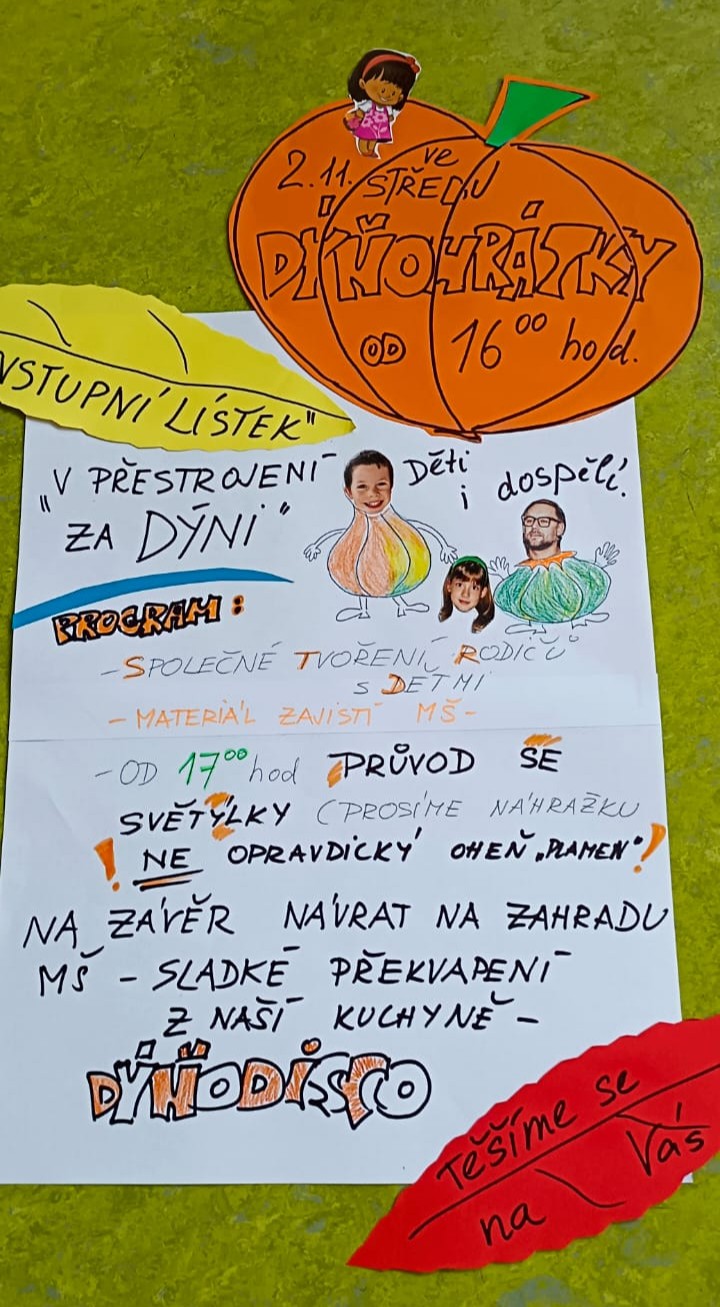 2.11. ve
STŘEDU
DÝŇOHRÁTKY
OD 16⁰⁰ hod.
VSTUPNÍ LÍSTEK"
„V PŘESTROJENÍ
ZA DÝNI"
Děti
i dospělí.
PROGRAM:
- SPOLEČNÉ TVOŘENÍ RODIČŮ
S DĚTMI
- MATERIÁL ZAJISTÍ MŠ -
- OD 17⁰⁰ hod PRŮVOD SE
SVĚTÝLKY (PROSÍME NÁHRAŽKU
! NE OPRAVDICKÝ OHEŇ „PLAMEN"!
NA ZÁVĚR NÁVRAT NA ZAHRADU
MŠ - SLADKÉ PŘEKVAPENÍ
Z NAŠÍ KUCHYNĚ -
DÝŇODISCO
Těšíme se
na Vás